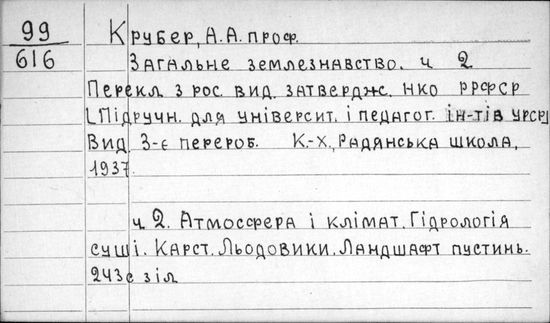 99
616
Крубер, А.А. проф.
Загальне землезнавство. ч 2
Перекл. з рос. вид. затвердж. НКО РРФСР
[Підручн. для університ. і педагог. ін-тів УРСР]
Вид. 3-є перероб. К.-Х., Радянська школа,
1937.
ч 2. Атмосфера і клімат. Гідрологія
суші. Карст. Льодовики. Ландшафт пустинь.
243с з іл